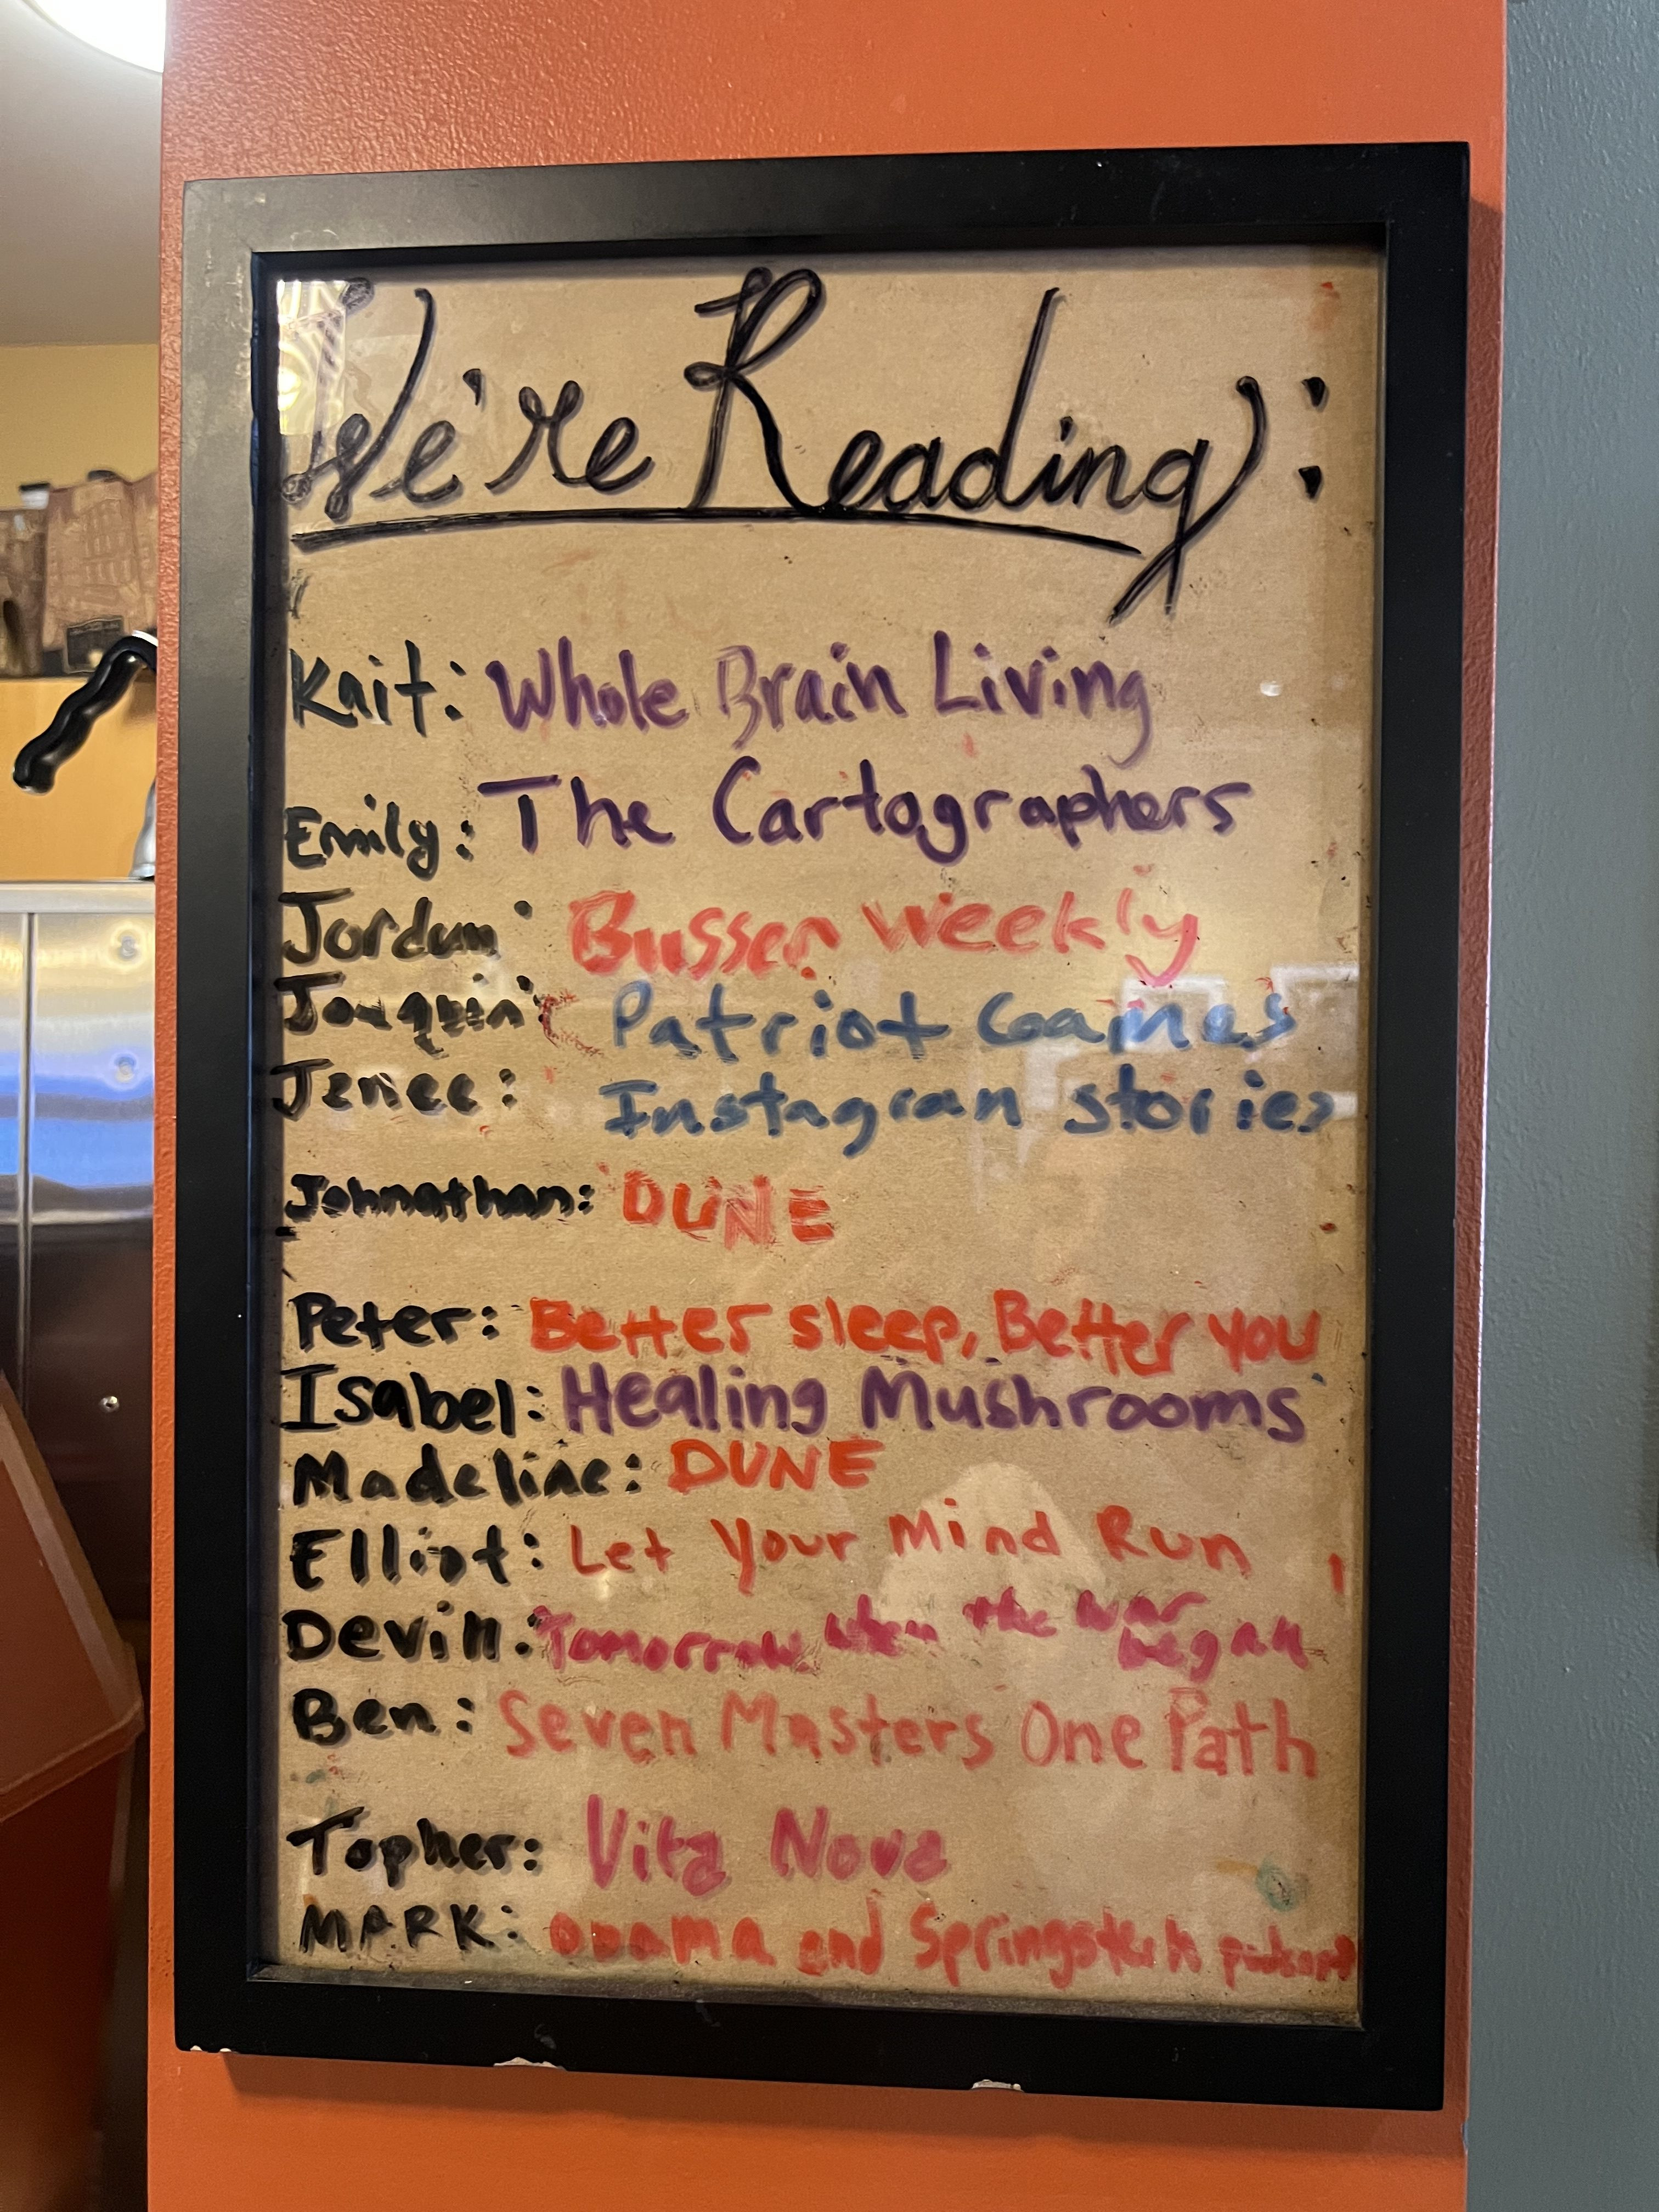 We're Reading:
Kait: Whole Brain Living
Emily: The Cartographers
Jordan: Busser Weekly
Joaquin: Patriot Games
Jenee: Instagram stories
Johnathan: DUNE
Peter: Better sleep, Better you
Isabel: Healing Mushrooms
Madeline: DUNE
Elliot: Let Your Mind Run
Devin: Tomorrow when the war began
Ben: Seven Masters One Path
Topher: Vita Nova
MARK: obama and Springsteen podcast